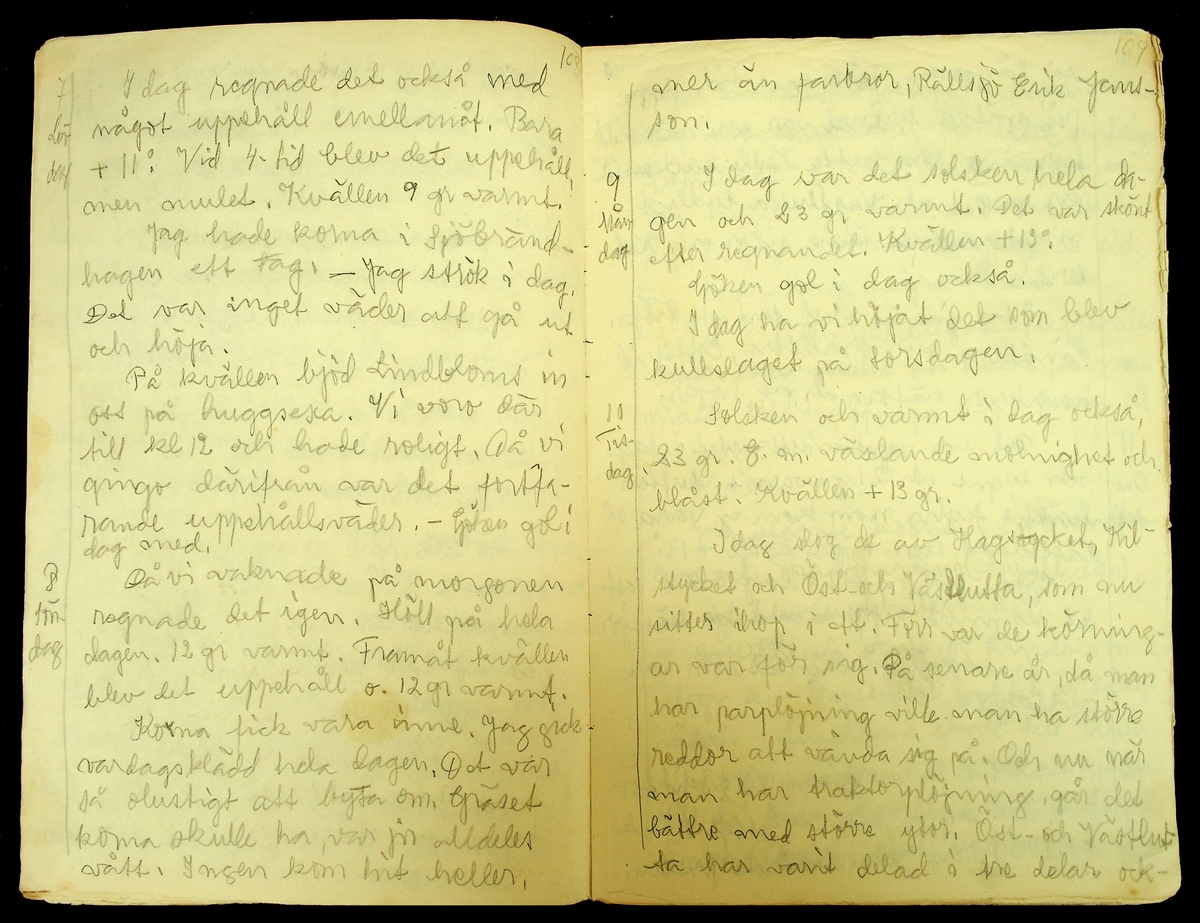 108
7 I dag regnade det också med
Lör- något uppehåll emellanåt. Bara
dag + 11°. Vid 4-tid blev det uppehåll,
men mulet. Kvällen 9 gr varmt.
Jag hade korna i Sjöbränd-
hagen ett tag. — Jag strök i dag.
Det var inget väder att gå ut
och höja.
På kvällen bjöd Lindbloms in
oss på huggsexa. Vi voro där
till kl 12 och hade roligt. Då vi
gingo därifrån var det fortfa-
rande uppehållsväder. – Göken gol i
dag med.
8 Då vi vaknade på morgonen
Sön- regnade det igen. Höll på hela
dag dagen. 12 gr varmt. Framåt kvällen
blev det uppehåll o. 12 gr varmt.
Korna fick vara inne. Jag gick
vardagsklädd hela dagen. Det var
så olustigt att byta om. Gräset
korna skulle ha, var ju alldeles
vått. Ingen kom hit heller,
109
mer än farbror, Rällsjö Erik Jans-
son.
9 I dag var det solsken hela da-
Mån- gen och 23 gr varmt. Det var skönt
dag efter regnandet. Kvällen + 13°.
Göken gol i dag också.
I dag ha vi höjat det som blev
kullslaget på torsdagen.
10 Solsken och varmt i dag också,
Tis- 23 gr. E. m. växlande molnighet och
dag blåst. Kvällen + 13 gr.
I dag slog de av Hagstycket, Kil-
stycket och Öst- och Västlutta, som nu
sitter ihop i ett. Förr var de körning-
ar var för sig. På senare år, då man
har parplöjning ville man ha större
reddor att vända sig på. Och nu när
man har traktorplöjning, går det
bättre med större ytor. Öst- och Västlut-
ta har varit delad i tre delar ock-